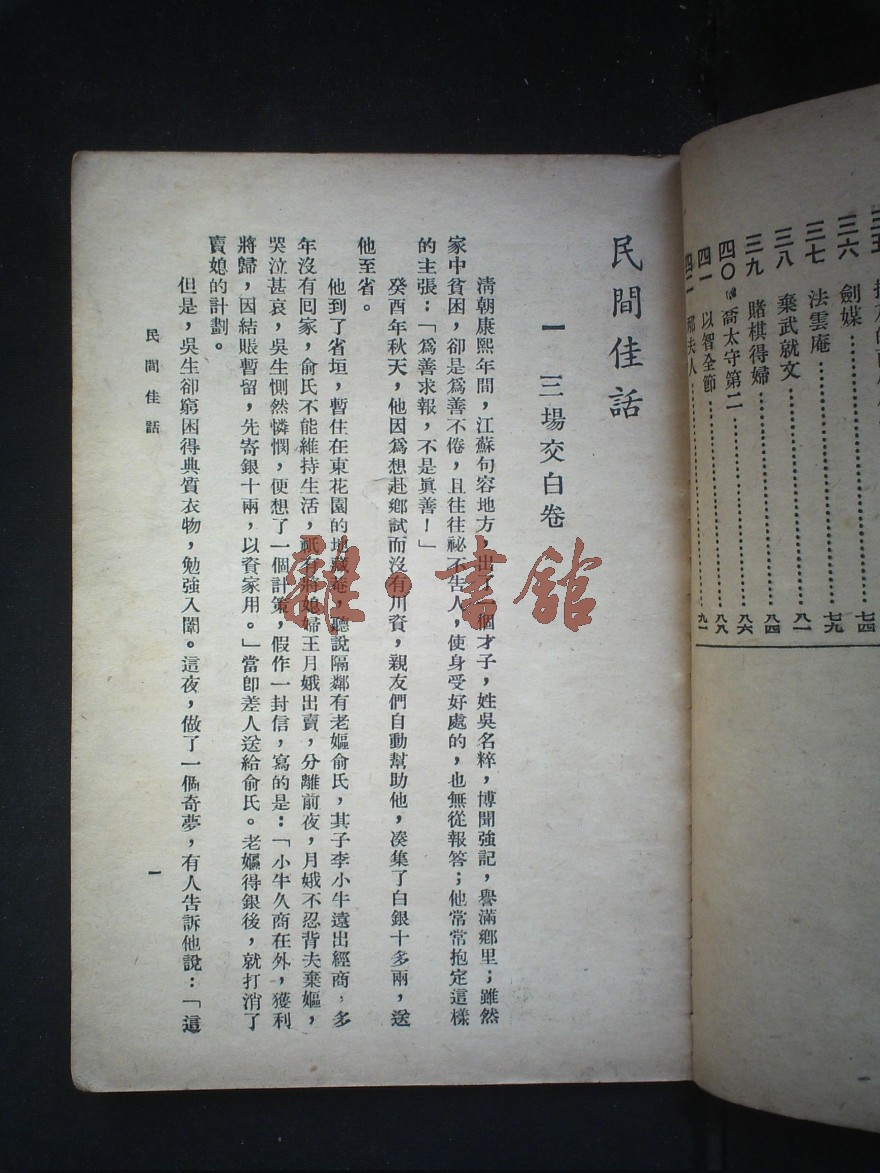 三六　劍媒⋯⋯七四
三七　法雲庵⋯⋯七九
三八　棄武就文⋯⋯八一
三九　賭棋得婦⋯⋯八四
四〇　喬太守第二⋯⋯八六
四一　以智全節⋯⋯八八
夫人⋯⋯九一
民間佳話
一　三場交白卷
清朝康熙年間，江蘇句容地方，出了一個才子，姓吳名粹，博聞強記，譽滿鄉里；雖然
家中貧困，卻是爲善不倦，且往往祕不告人，使身受好處的，也無從報答；他常常抱定這樣
的主張：「爲善求報，不是眞善！」
癸酉年秋天，他因爲想赴鄉試而沒有川資，親友們自動幫助他，湊集了白銀十多兩，送
他至省。
他到了省垣，暫住在東花園的地藏庵，聽說隔鄰有老嫗俞氏，其子李小牛遠出經商，多
年沒有回家，俞氏不能維持生活，祇有將媳婦王月娥出賣，分離前夜，月娥不忍背夫棄嫗，
哭泣甚哀，吳生惻然憐憫，便想了一個計策，假作一封信，寫的是：「小牛久商在外，獲利
將歸，因結賬暫留，先寄銀十兩，以資家用。」當卽差人送給俞氏。老嫗得銀後，就打消了
賣媳的計劃。
但是，吳生卻窮困得典質衣物，勉強入闈。這夜，做了一個奇夢，有人告訴他說：「這
民間佳話
一
雜·書館